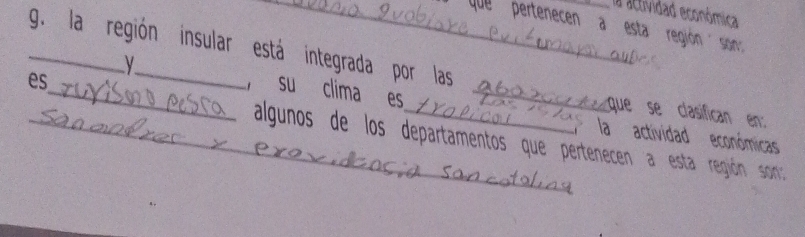 la actividad económica
que pertenecen a esta región son:
g. la región insular está integrada por las las islas que se clasifican en:
y , su clima es tropical , la actividad económicas
es turismo pesca algunos de los departamentos que pertenecen a esta región son:
san andres y providencia san catalina